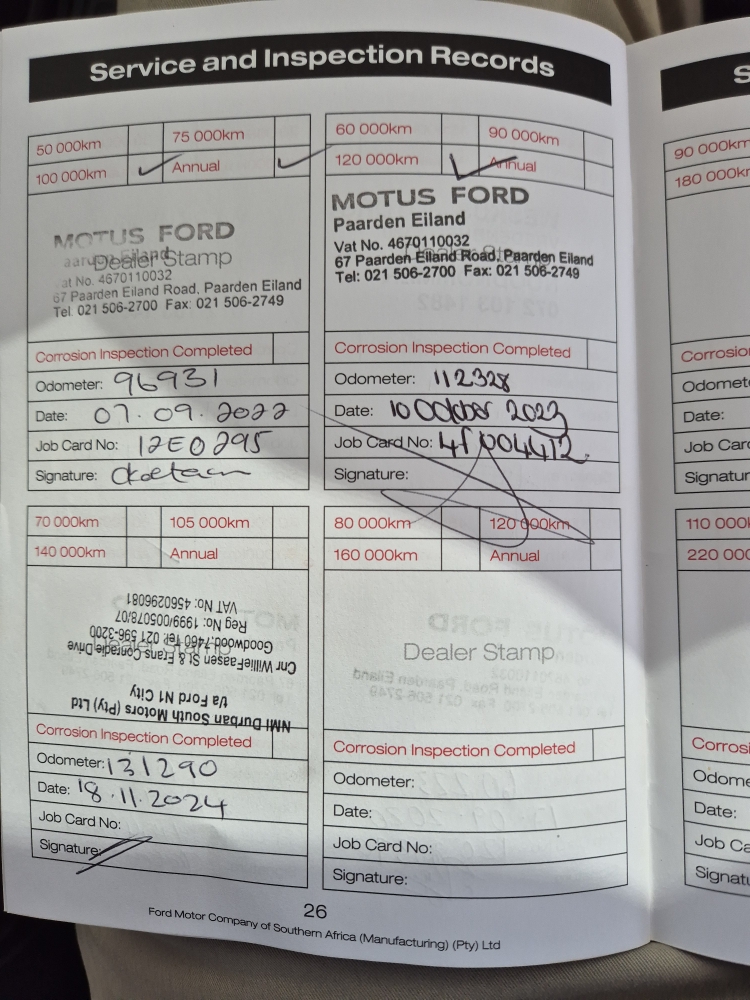 Service and Inspection Records
50 000km 75 000km
100 000km Annual
MOTUS FORD
Dealer Stamp
67 Paarden Eiland Road, Paarden Eiland
Tel: 021 506-2700 Fax: 021 506-2749
Corrosion Inspection Completed
Odometer: 96931
Date: 07.09.2022
Job Card No: 12E0295
Signature:
60 000km 90 000km
120 000km Annual
MOTUS FORD
Paarden Eiland
Vat No. 4670110032
67 Paarden Eiland Road, Paarden Eiland
Tel: 021 506-2700 Fax: 021 506-2749
Corrosion Inspection Completed
Odometer: 112328
Date: 10 October 2023
Job Card No: 4f004412
Signature:
70 000km 105 000km
140 000km Annual
NMI Durban South Motors (Pty) Ltd
t/a Ford N1 City
Cnr Willie Faasen St & Frans Conradie Drive
Goodwood.7460 Tel: 021 596-3200
Reg No: 1999/005078/07
VAT No: 4560296081
Corrosion Inspection Completed
Odometer: 131290
Date: 18.11.2024
Job Card No:
Signature:
80 000km 120 000km
160 000km Annual
Dealer Stamp
Corrosion Inspection Completed
Odometer:
Date:
Job Card No:
Signature:
26
Ford Motor Company of Southern Africa (Manufacturing) (Pty) Ltd
S
90 000km
180 000km
Corrosio
Odomet
Date:
Job Car
Signatur
110 000
220 000
Corrosi
Odome
Date:
Job Ca
Signatu